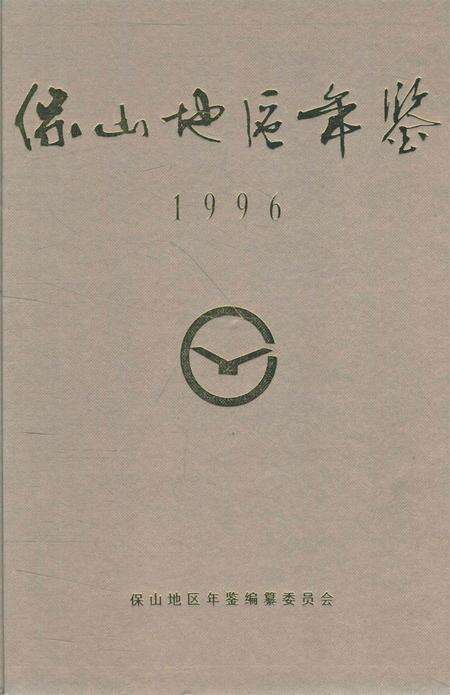 保山地區年鉴
1996
保山地区年鉴编纂委员会